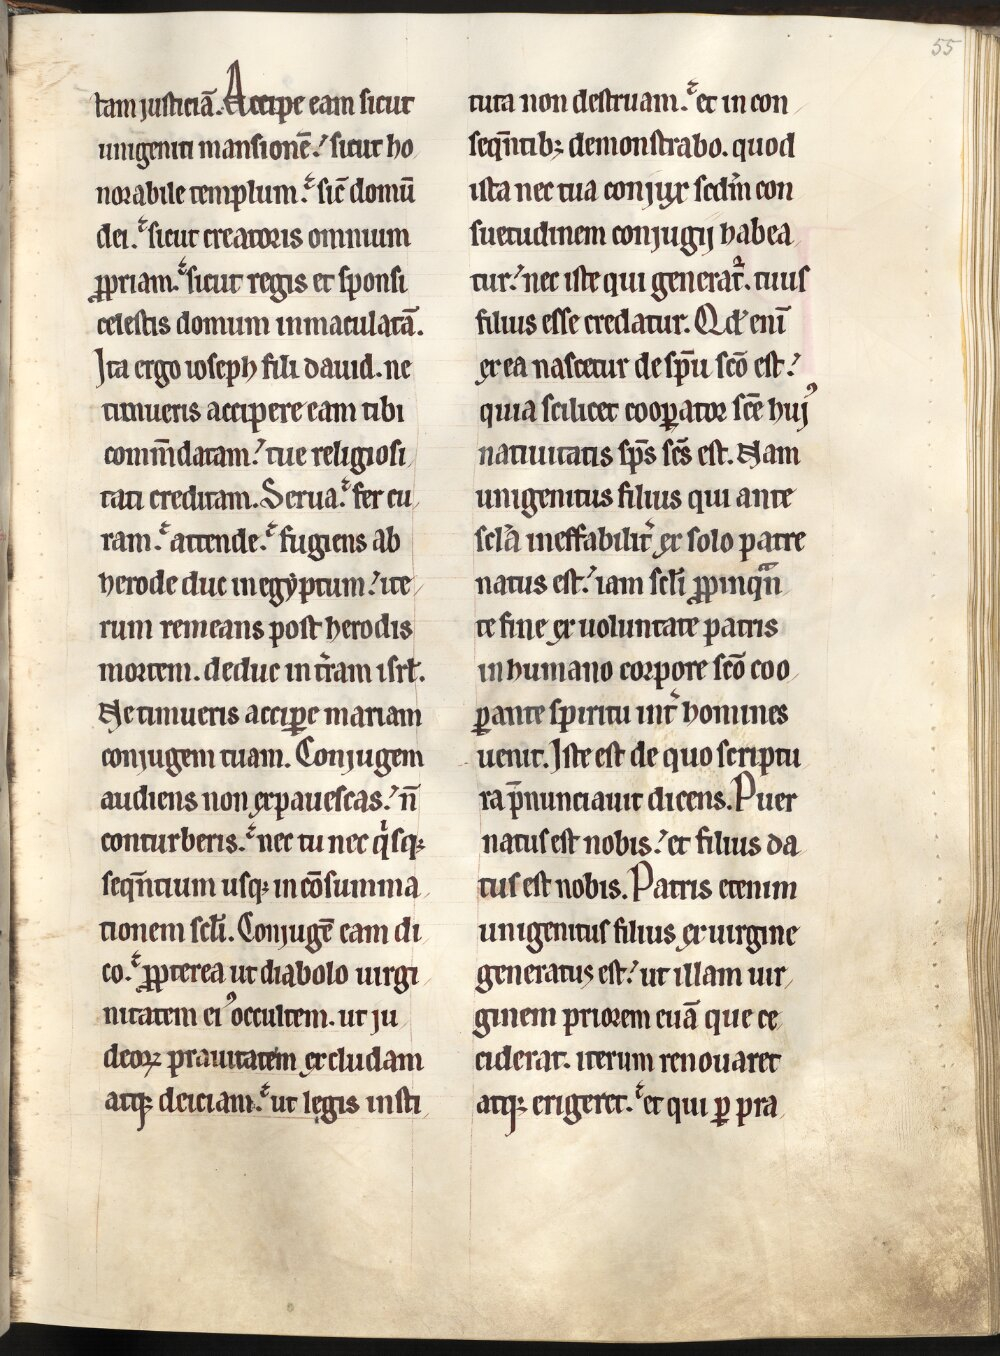 55
tam justiciā. Accipe eam sicut
unigeniti mansionē. sicut ho
norabile templum. sic̄ domū
dei. sicut creatoris omnium
ꝓpriam. sicut regis et sponsi
celestis domum inmaculatā.
Ita ergo ioseph fili dauid. ne
timueris accipere eam tibi
comm̄datam. tue religiosi
tati creditam. Serua. fer cu
ram. attende. fugiens ab
herode duc in egẏptum. ite
rum remeans post herodis
mortem. deduc in tr̄am isrł.
Ne timueris acciꝑe mariam
conjugem tuam. Conjugem
audiens non expauescas. n̄
conturberis. nec tu nec qͥsqꝫ
seqn̄tium usqꝫ in cōsumma
tionem scłi. Conjugē eam di
co. ꝓpterea ut diabolo uirgi
nitatem eiꝰ occultem. ut ju
deoꝝ prauitatem excludam
atqꝫ deiciam. ut legis insti
tuta non destruam. et in con
seqn̄tibꝫ demonstrabo. quod
ista nec tua conjux scdm̄ con
suetudinem conjugij habea
tur. nec iste qui generat᷑. tuus
filius esse credatur. Qđ enī
ex ea nascetur de sp̄u sc̄o est.
quia scilicet cooꝑator sc̄e hujꝰ
natiuitatis sp̄s sc̄s est. Nam
unigenitus filius qui ante
scl̄a ineffabilit᷑ ex solo patre
natus est. iam scłi ꝓpinqn̄
te fine ex uoluntate patris
in humano corpore sc̄o coo
ꝑante spiritu int᷑ homines
uenit. Iste est de quo scriptu
ra p̄nunciauit dicens. Puer
natus est nobis. et filius da
tus est nobis. Patris etenim
unigenitus filius ex uirgine
generatus est. ut illam uir
ginem priorem euā que ce
ciderat. iterum renouaret
atqꝫ erigeret. et qui ꝑ pra